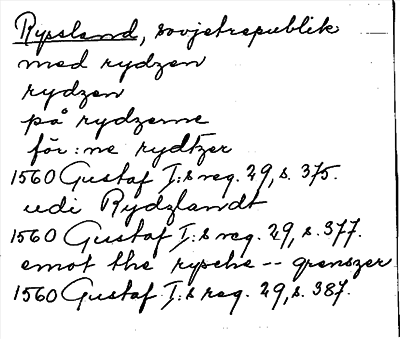 Ryssland, sovjetrepublik
med rydzen
rydzen
på rydzerne
för:ne rydtzer
1560 Gustaf I:s reg. 29, s. 375.
udi Rydzlandt
1560 Gustaf I:s reg. 29, s. 377.
emot the rysche -- grenszer
1560 Gustaf I:s reg. 29, s. 387.